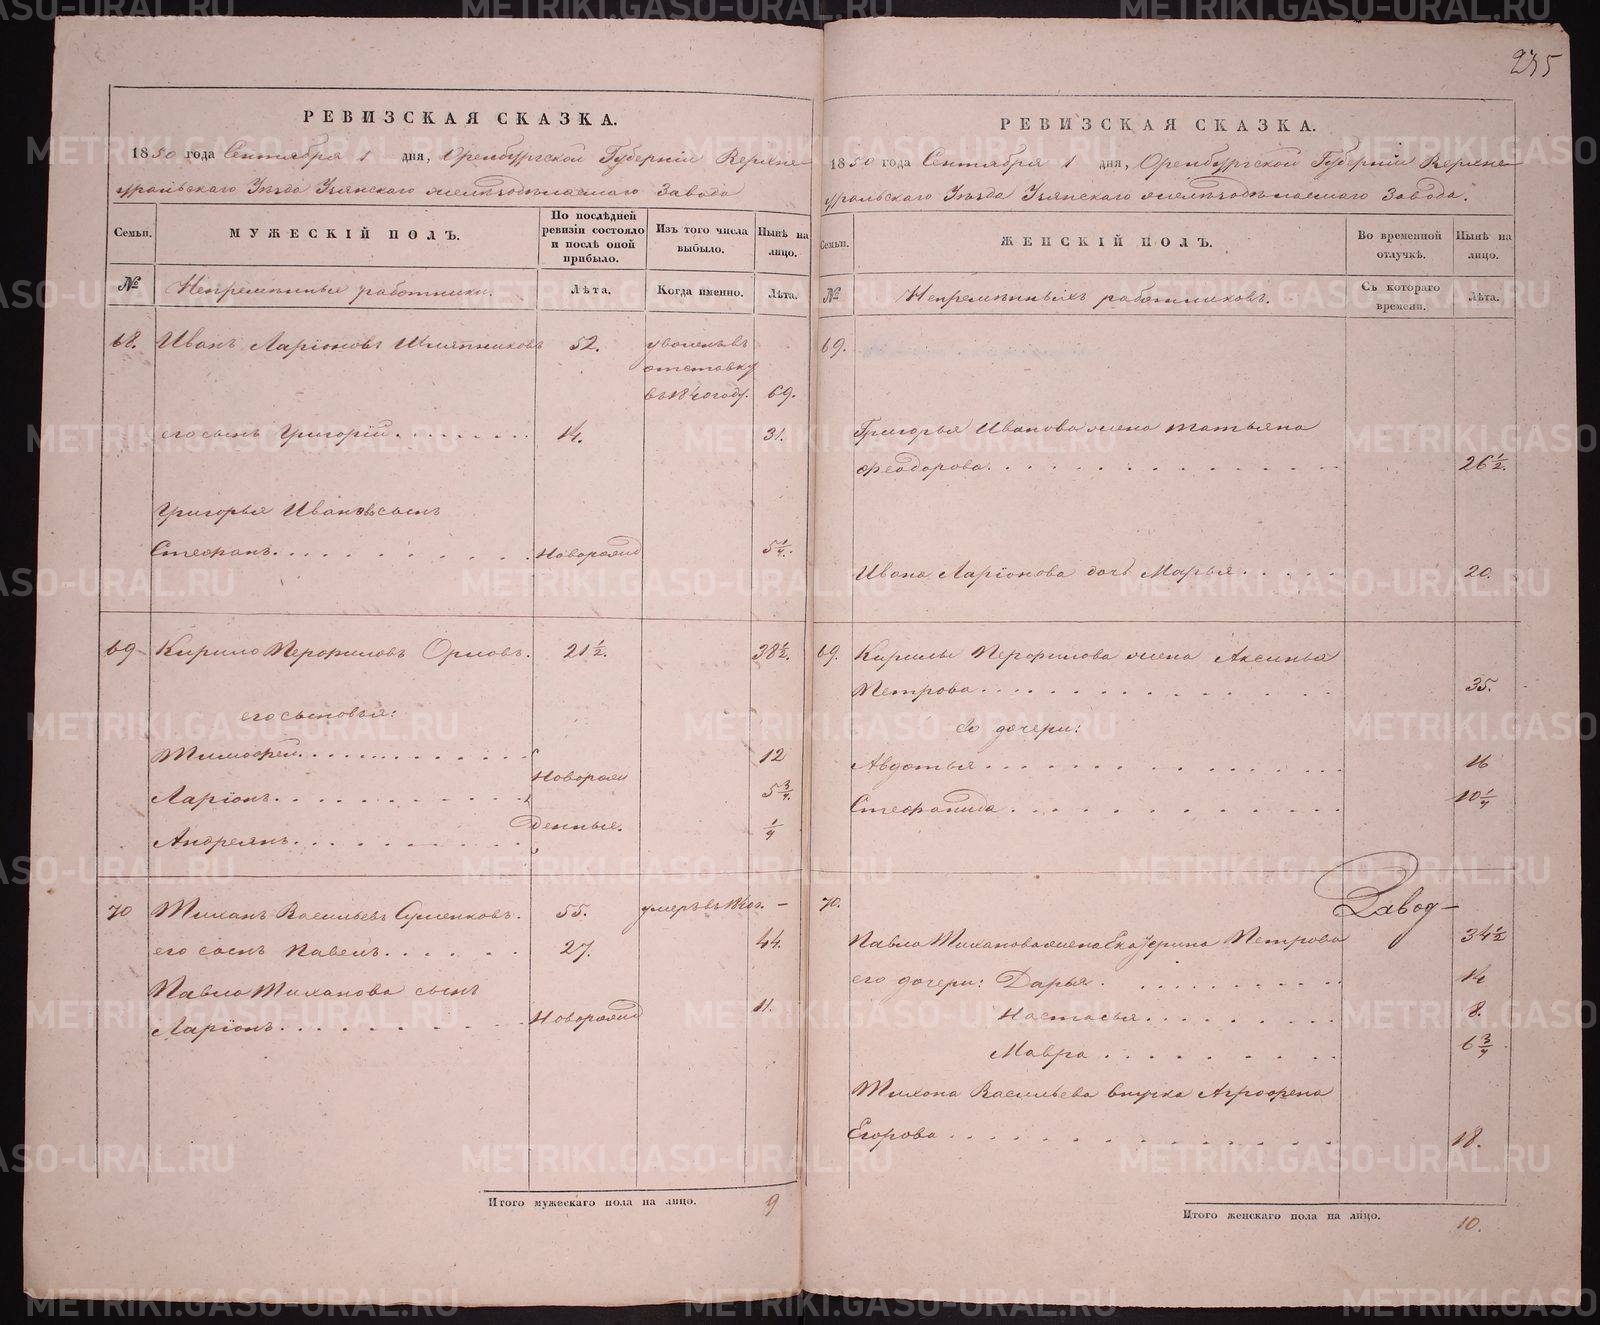 235
РЕВИЗСКАЯ СКАЗКА.
1850 года Сентября 1 дня, Оренбургской Губерніи Верхне
уральскаго Уѣзда Узянскаго желѣзодѣлаемаго Завода
Семьи.
МУЖЕСКІЙ ПОЛЪ.
По послѣдней
ревизіи состояло
и послѣ оной
прибыло.
Изъ того числа
выбыло.
Нынѣ на
лицо.
№
Непремѣнные работники.
Лѣта.
Когда именно.
Лѣта.
68. Иванъ Ларіоновъ Шляпниковъ 52. уволенъ въ
отставку
въ 1840 году. 69.
его сынъ Григорій 14. 31.
Григорья Иванова сынъ
Стефанъ Новорожд 5 1/4.
69 Кирило Перфиловъ Орловъ. 21 1/2. 38 1/2.
его сыновья:
Тимофей 12
Новорож
Ларіонъ 5 3/4.
денные.
Андреянъ 1/4
70 Тиханъ Васильевъ Сушенковъ. 55. умеръ въ 1840 г. -
его сынъ Павелъ 27. 44.
Павла Тиханова сынъ
Ларіонъ Новорожд 11.
Итого мужескаго пола на лицо. 9
РЕВИЗСКАЯ СКАЗКА.
1850 года Сентября 1 дня, Оренбургской Губерніи Верхне
уральскаго Уѣзда Узянскаго желѣзодѣлаемаго Завода.
Семьи.
ЖЕНСКІЙ ПОЛЪ.
Во временной
отлучкѣ.
Нынѣ на
лицо.
№
Непремѣнныхъ работниковъ.
Съ котораго
времени.
Лѣта.
69.
Григорья Иванова жена Татьяна
Феодорова 26 1/2.
Ивана Ларіонова дочь Марья 20.
69. Кирилы Перфилова жена Аксинья
Петрова 35.
Ево дочери:
Авдотья 16
Стефанида 10 1/4
70. Завод-
Павла Тиханова жена Екатерина Петрова 34 1/2
его дочери: Дарья 14
Настасья 8.
Мавра 6 3/4
Тихона Васильева внучка Агрофена
Егорова 18.
Итого женскаго пола на лицо. 10.
METRIKI.GASO-URAL.RU